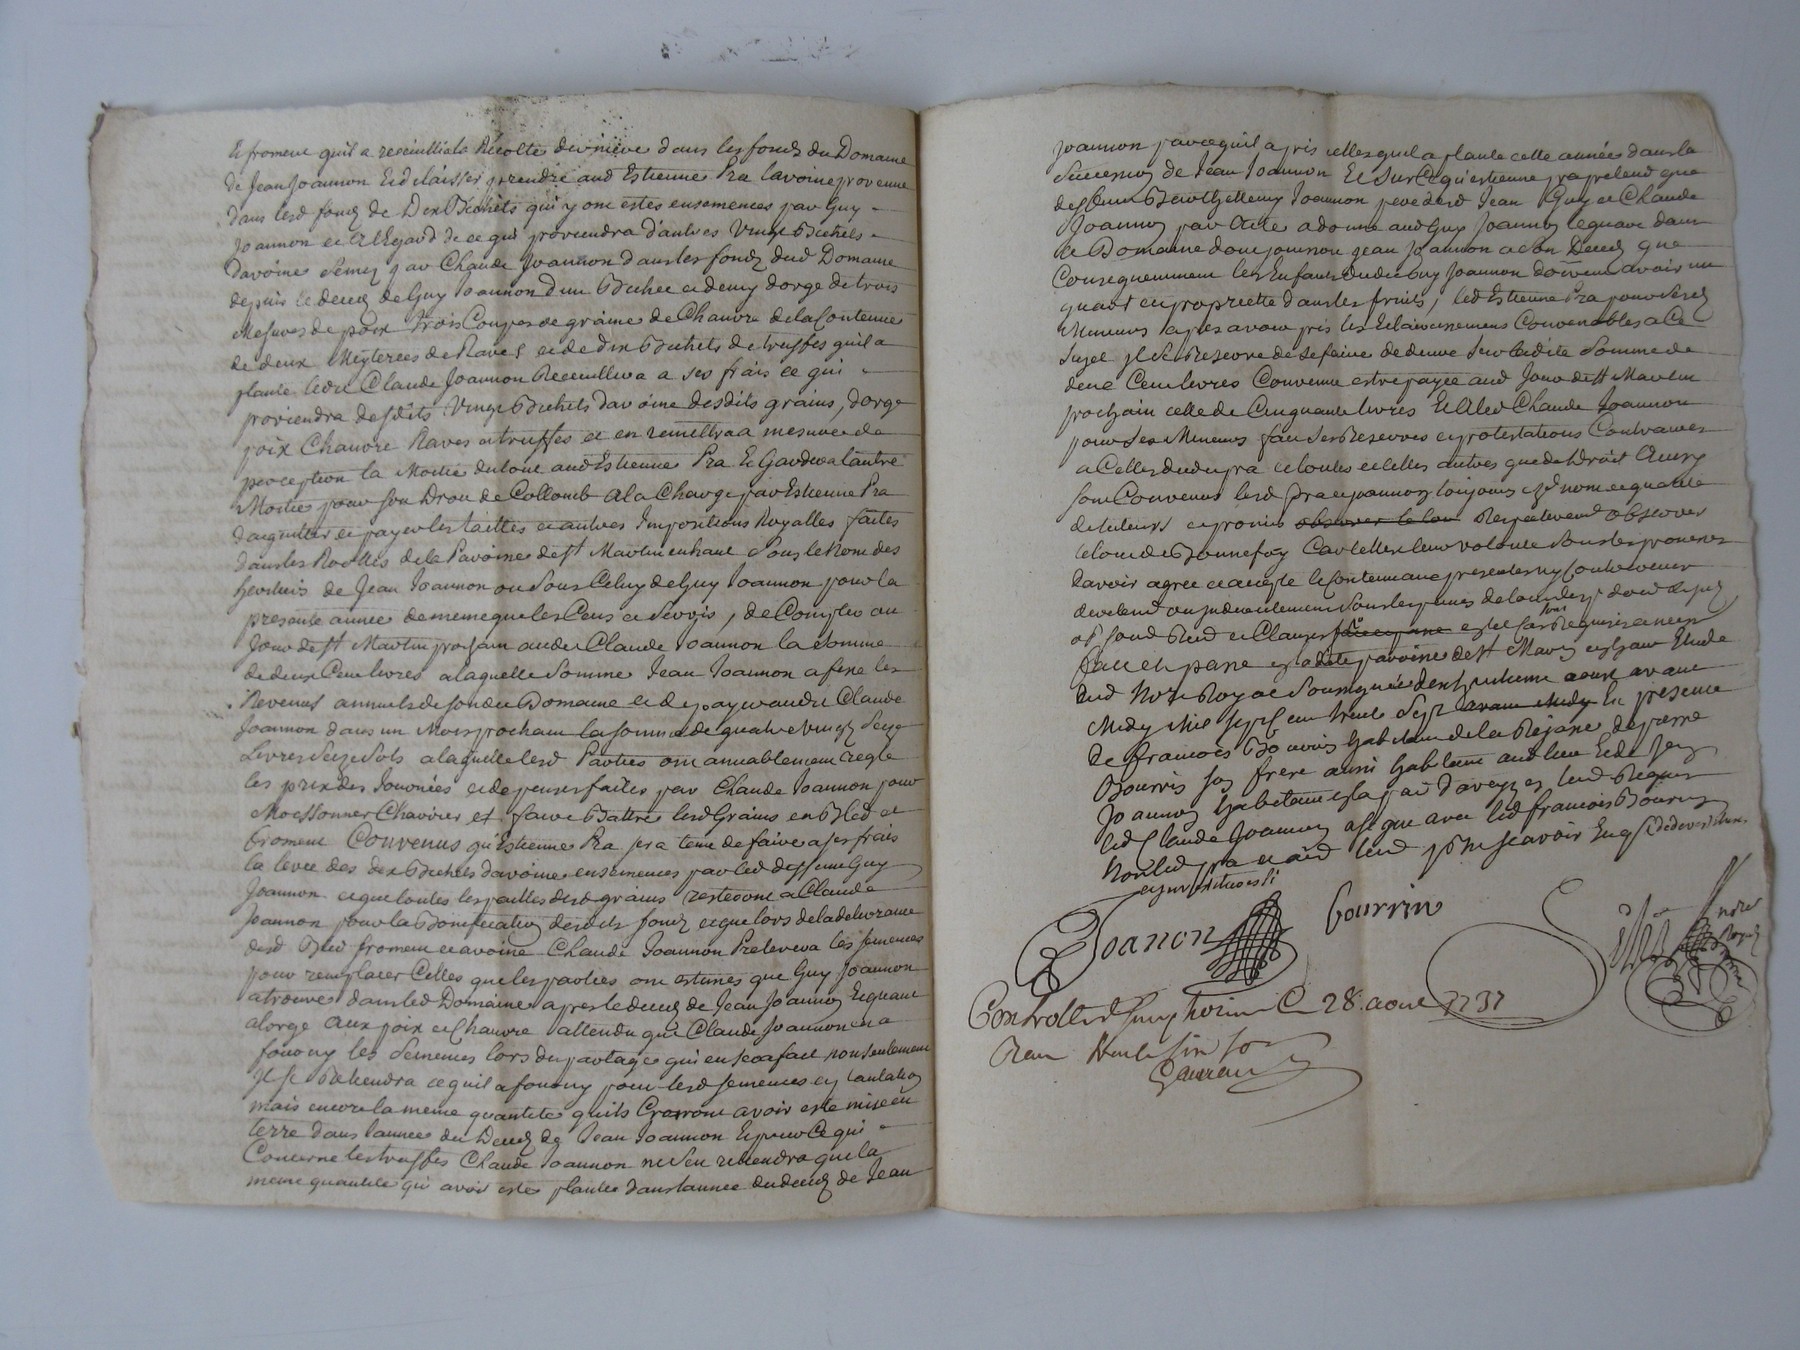 et froment quil a recueillia la Récolte derniere dans les fonds du Domaine
de Jean Joannon Et delaisser prendre aud Estienne Pra lavoine provenue
dans lesd fonds de Dix Bichets qui y ont estes ensemences par Guy
Joannon et a lEgard de ce qui proviendra dautres Vingt Bichets
davoine Semez par Claude Joannon dans les fonds dud Domaine
depuis le deced de Guy Joannon d'un Bichet et demy dorge de trois
Mesures de poix trois Coupes de graine de Chanvre de la Contenue
de deux Meyterees de Raves et de dix Bichets de truffes quil a
plante ledit Claude Joannon Recueillera a ses frais ce qui
proviendra desdits Vingt Bichets davoine desdits grains, dorge
poix Chanvre Raves et truffes et en remettra a mesure de
perception la Moitié du tout aud Estienne Pra Et Gardera lautre
Moitie pour son Droit de Collomb a la Charge par Estienne Pra
daquitter et payer les tailles et autres Impositions Royalles faites
dans les Rolles de la Paroisse de St Martin en haut Sous le Nom des
heritiers de Jean Joannon ou Sous Celuy de Guy Joannon pour la
presente annee de meme que les Cens et Servis, de Compter au
Jour de St Martin prochain audit Claude Joannon la Somme
de deux Cent livres a laquelle Somme Jean Joannon a fixe les
Revenus annuels de sondit Domaine et de payer audit Claude
Joannon dans un Mois prochain la somme de quatre vingt Seize
Livres Seize Sols a laquelle lesd Parties ont amiablement regle
les prix des Journées et depenses faites par Claude Joannon pour
Moissonner Charrier et faire Battre lesd Grains en Bled et
froment Convenus qu'Estienne Pra sera tenu de faire a ses frais
la levee des dix Bichets davoine ensemences par led deffunt Guy
Joannon et que toutes les pailles desd grains resteront a Claude
Joannon pour la Bonification desdits fonds et que lors de la delivrance
desd Bled froment et avoine Claude Joannon Prelevera les semences
pour remplacer Celles que les parties ont estimes que Guy Joannon
a trouve dans led Domaine apres le deced de Jean Joannon Et quant
a lorge aux poix et Chanvre attendu que Claude Joannon en a
fourny les Semences lors du partage qui en sera fait non seulement
Il se Retiendra ce quil a fourny pour lesd semences
mais encore la meme quantite quils Croiront avoir este mise en
terre dans lannee du Deced de Jean Joannon Et pour Ce qui
Concerne les truffes Claude Joannon ne sen retiendra que la
meme quantite qui avoit este plantee dans lannee du deced de Jean
Joannon parce quil a pris celles quil a plante cette année dans la
Succession de Jean Joannon Et Sur Ce qu'estienne pra pretend que
deffunt Barthellemy Joannon pere desd Jean Guy et Claude
Joannon par acte a donne aud Guy Joannon le quart dans
le Domaine dont jouissoit Jean Joannon a Son Deced que
Consequemment les Enfants dudit Guy Joannon doivent avoir un
quart en propriette dans les fruits, led Estienne Pra pour Sesd
Mineurs apres avoir pris les Eclaircissements Convenables a Ce
Sujet Il Se Reserve de Se faire deduire Sur ladite Somme de
deux Cent livres Convenue estre payee aud Jour de St Martin
prochain celle de Cinquante livres Et a led Claude Joannon
pour Ses Mineurs fait Ses Reserves et protestations Contraires
a Celles dudit pra et toutes et telles autres que de Droit Ainsy
Sont Convenus lesd Pra et Joannon toujours esd nom et qualite
de tuteurs et promis observer le tout Respectivement observer
le tout de Bonne foy Car telle est leur volonte Sous les
davoir agree et accepte le Contenu aux presentes ny Contrevenir
directement ou Indirectement Sous les peines de tous
et Clauses
fait et passe en ladite paroisse de St Martin en haut Etude
dud Nore Royal Soussigné le vingt huitieme aoust avant
Midy Mil sept Cent trente Sept avant Midy En presence
de francois Bouvin habitant de la
son frere aussi habitant aud lieu Et de
Joannon habitant en la par d'aveyze lesd Requis
led Claude Joannon a signe avec led francois
Non led pra et aud lesd pour ne scavoir Enquis
Joanon
Controllé a St Simphorien le 28 aout 1737